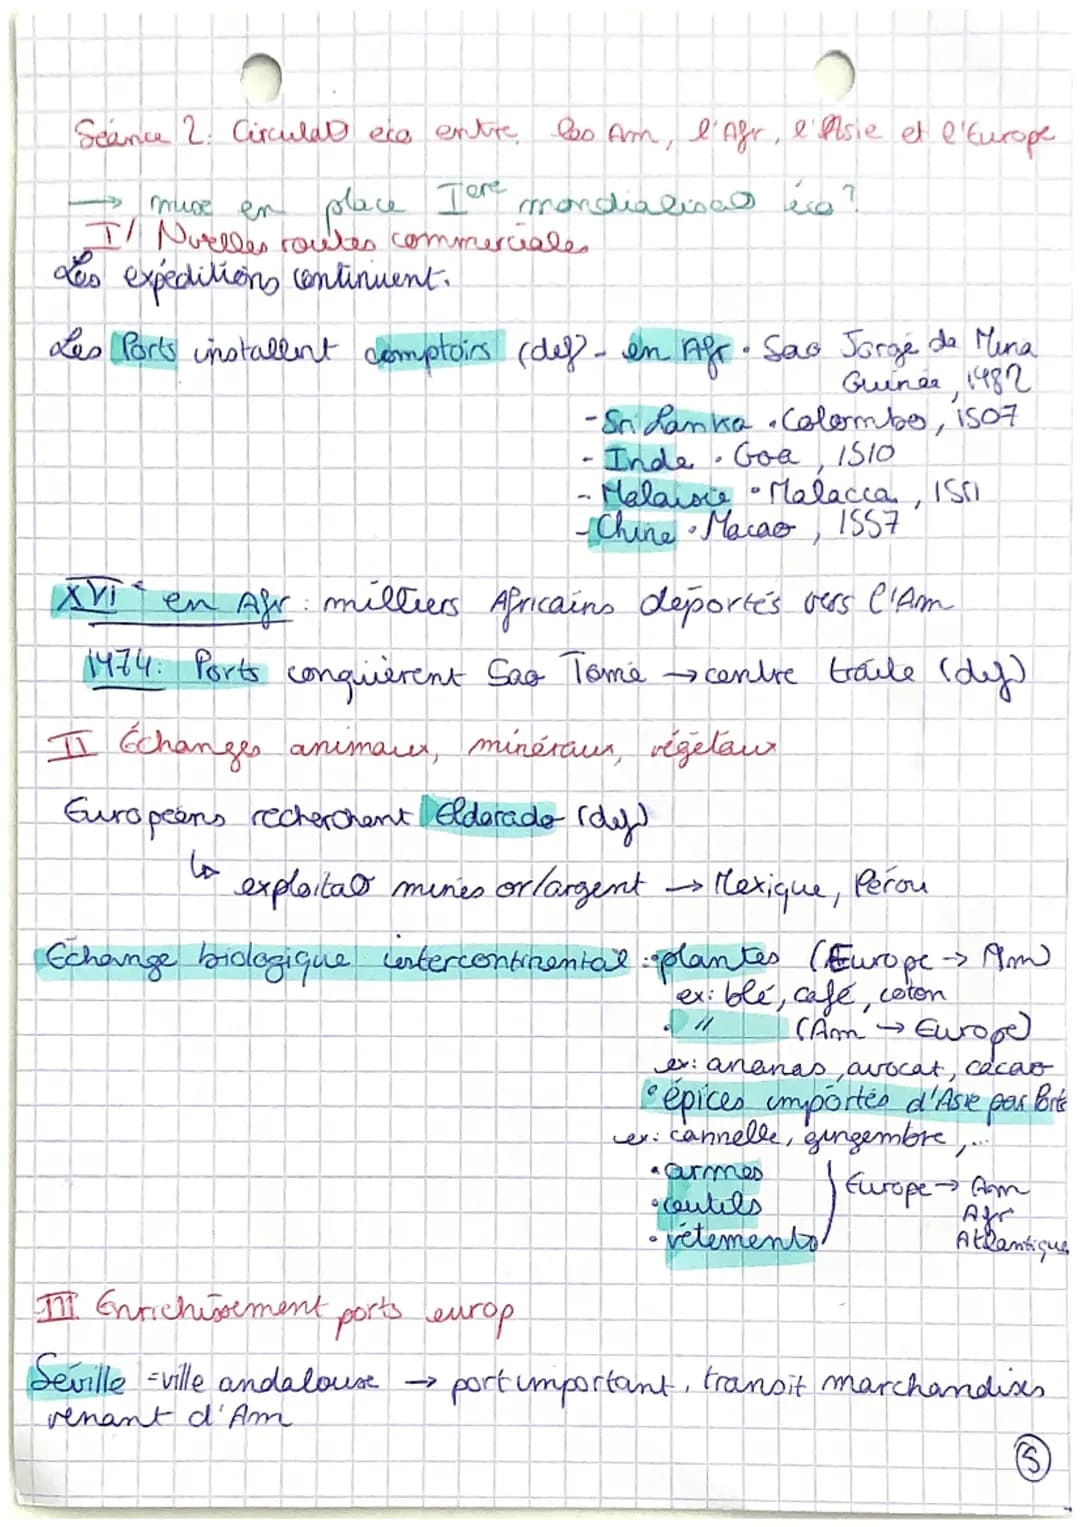 Séance 2: Circulatº éco entre les Am, l'Afr, l'Asie et l'Europe
→ mise en place Iere mondialisatº éco?
I/ Nvelles routes commerciales
Les expéditions continuent.
Les Ports installent comptoirs (def) - en Afr • Sao Jorge da Mina
Guinée, 1482
- Sri Lanka • Colombo, 1507
- Inde • Goa, 1510
- Malaisie • Malacca, 1511
- Chine • Macao, 1557
XVIe en Afr : milliers Africains déportés vers l'Am
1474: Ports conquièrent Sao Tomé → centre traite (def)
II Échanges animaux, minéraux, végétaux
Européens recherchent Eldorado (def)
↳ exploitatº mines or/argent → Mexique, Pérou
Echange biologique intercontinental : • plantes (Europe → Am)
ex: blé, café, coton
• " (Am → Europe)
ex: ananas, avocat, cacao
• épices importés d'Asie par Ports
ex: cannelle, gingembre,...
• armes
• outils
• vêtements
Europe → Am
Afr
Atlantique
III Enrichissement ports europ
Séville = ville andalouse → port important, transit marchandises
venant d'Am
5